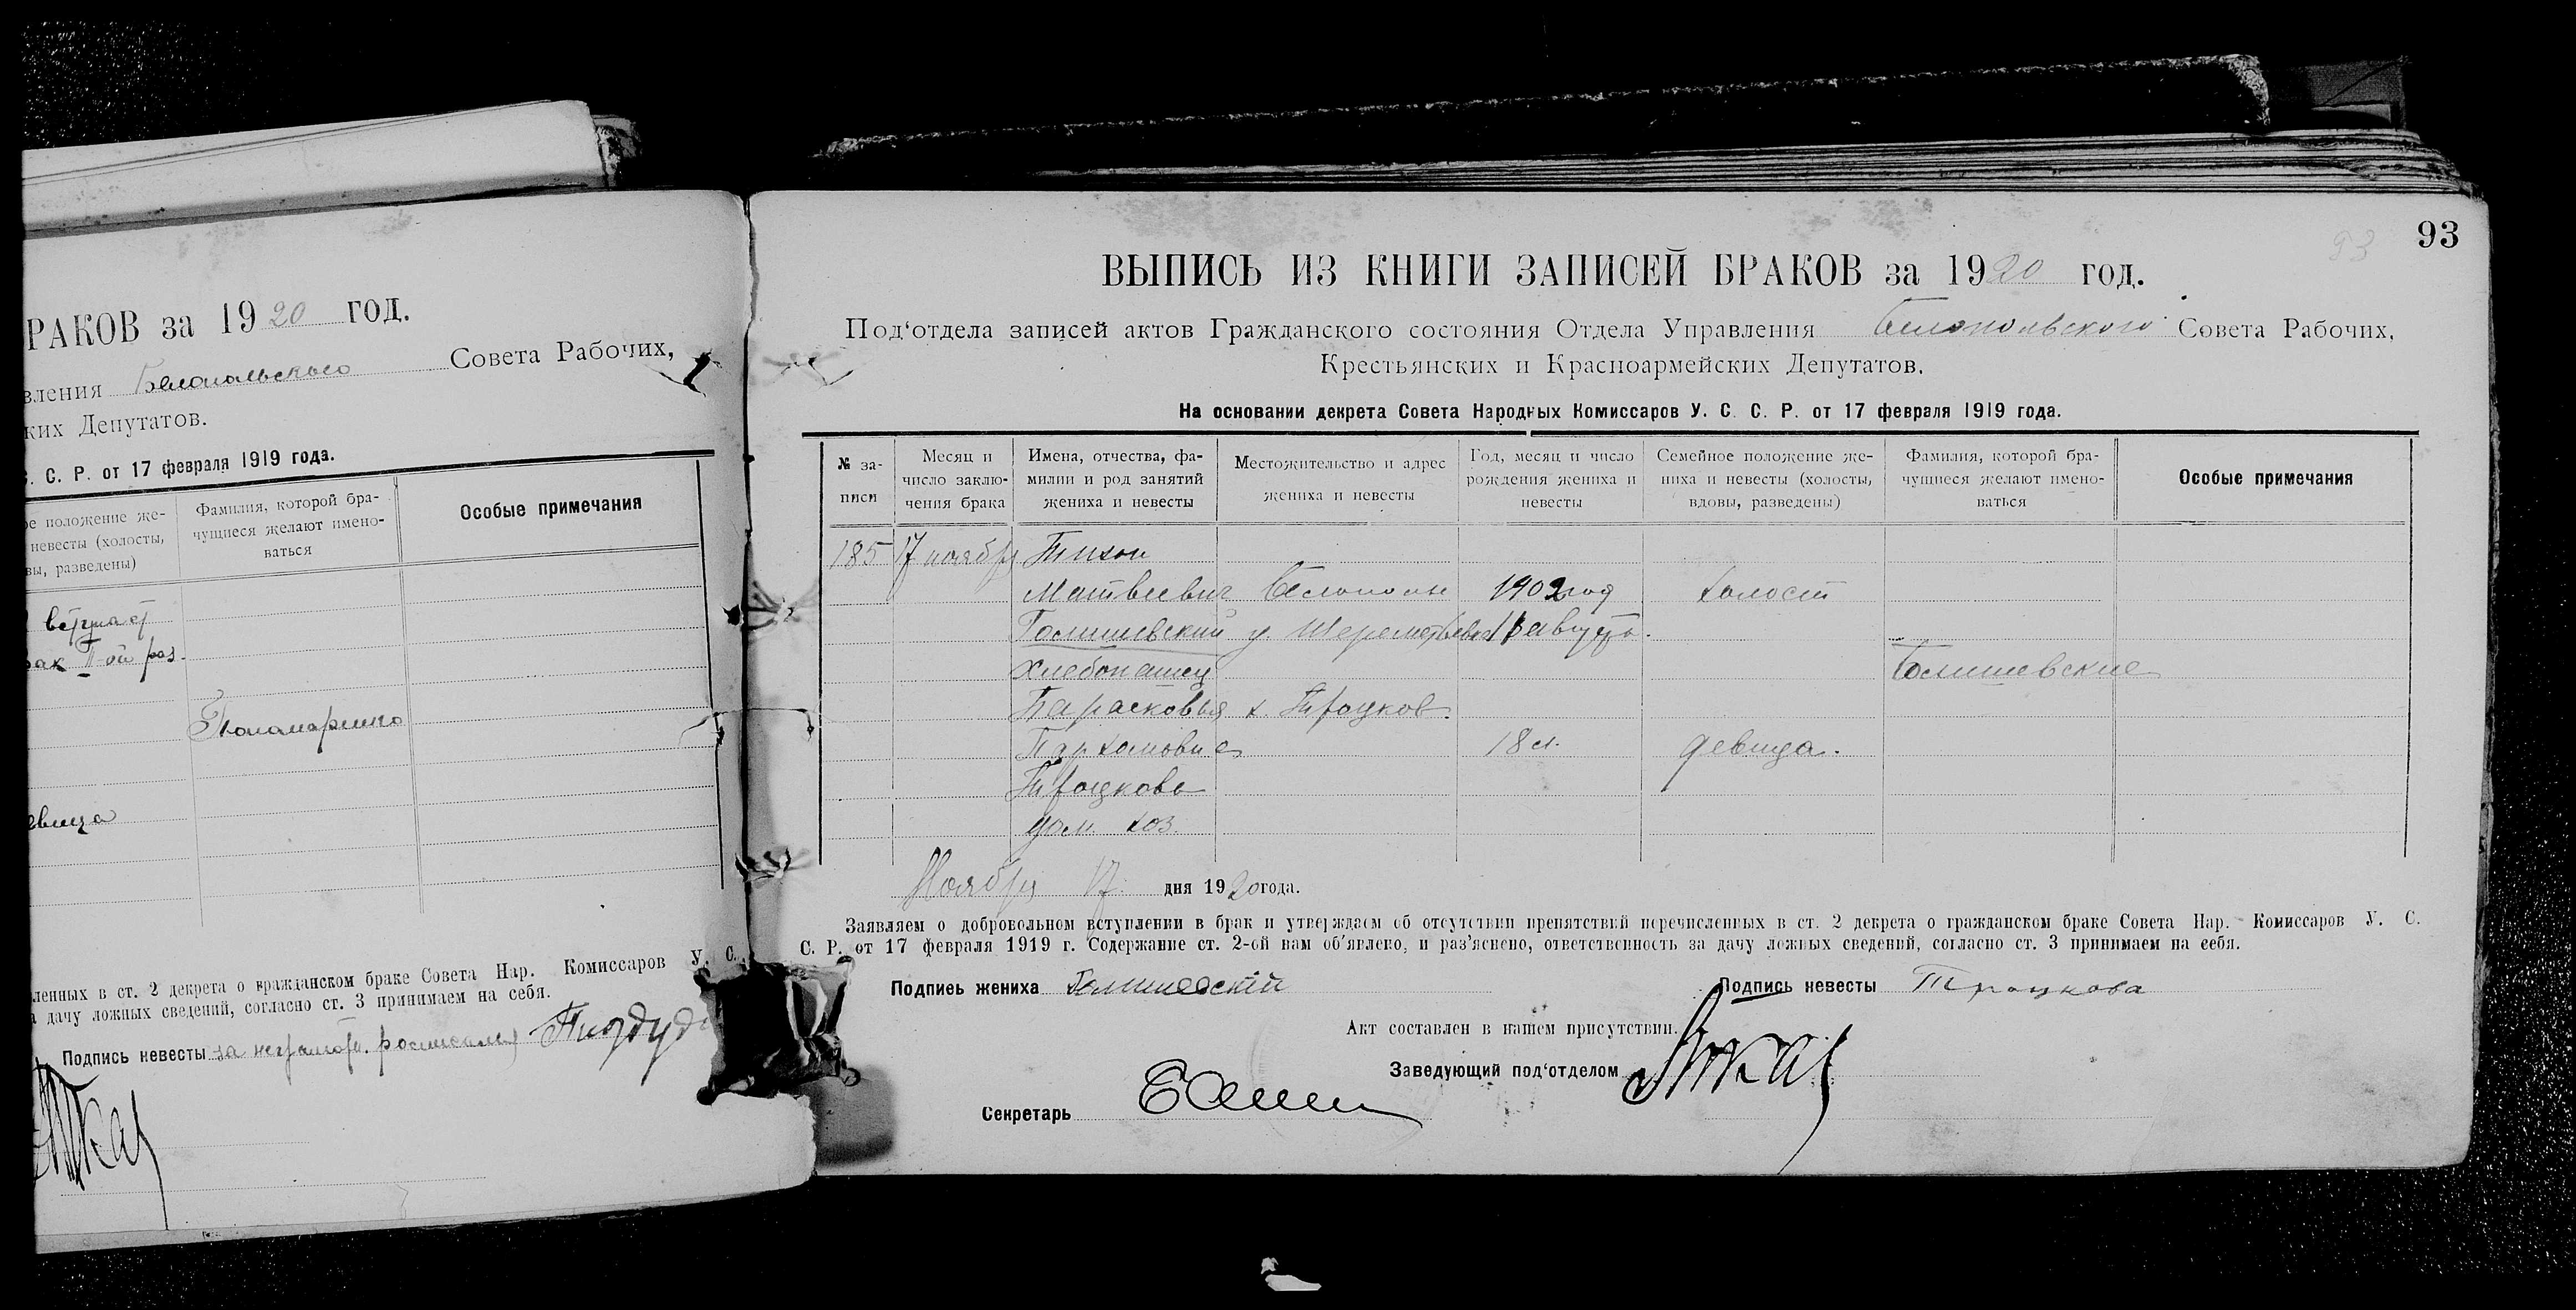 РАКОВ за 1920 год.
вления Белопольского Совета Рабочих,
ких Депутатов.
С. С. Р. от 17 февраля 1919 года.
ое положение же-
невесты (холосты,
вы, разведены)
Фамилия, которой бра-
чущиеся желают имено-
ваться
Особые примечания
рак II-ой раз.
Пономаренко
евица
ленных в ст. 2 декрета о гражданском браке Совета Нар. Комиссаров У. С.
а дачу ложных сведений, согласно ст. 3 принимаем на себя.
Подпись невесты за неграмотн.
93
93
ВЫПИСЬ ИЗ КНИГИ ЗАПИСЕЙ БРАКОВ за 1920 год.
Под‘отдела записей актов Гражданского состояния Отдела Управления Белопольского Совета Рабочих,
Крестьянских и Красноармейских Депутатов.
На основании декрета Совета Народных Комиссаров У. С. С. Р. от 17 февраля 1919 года.
№ за-
писи
Месяц и
число заклю-
чения брака
Имена, отчества, фа-
милии и род занятий
жениха и невесты
Местожительство и адрес
жениха и невесты
Год, месяц и число
рождения жениха и
невесты
Семейное положение же-
ниха и невесты (холосты,
вдовы, разведены)
Фамилия, которой бра-
чущиеся желают имено-
ваться
Особые примечания
185 17 ноября Тихон
Матвеевич Белополье 1902 год холост
Голишевский у. августа.
Хлебопашец Голишевские
Парасковья х. Троцков.
Пархамовна 18 л. девица.
Троцкова
дом. хоз.
Ноября 17 дня 1920 года.
Заявляем о добровольном вступлении в брак и утверждаем об отсутствии препятствий перечисленных в ст. 2 декрета о гражданском браке Совета Нар. Комиссаров У. С.
С. Р. от 17 февраля 1919 г. Содержание ст. 2-ой нам об‘явлено, и раз‘яснено, ответственность за дачу ложных сведений, согласно ст. 3 принимаем на себя.
Подпись жениха Голишевский
Подпись невесты Троцкова
Акт составлен в нашем присутствии.
Заведующий под‘отделом
Секретарь